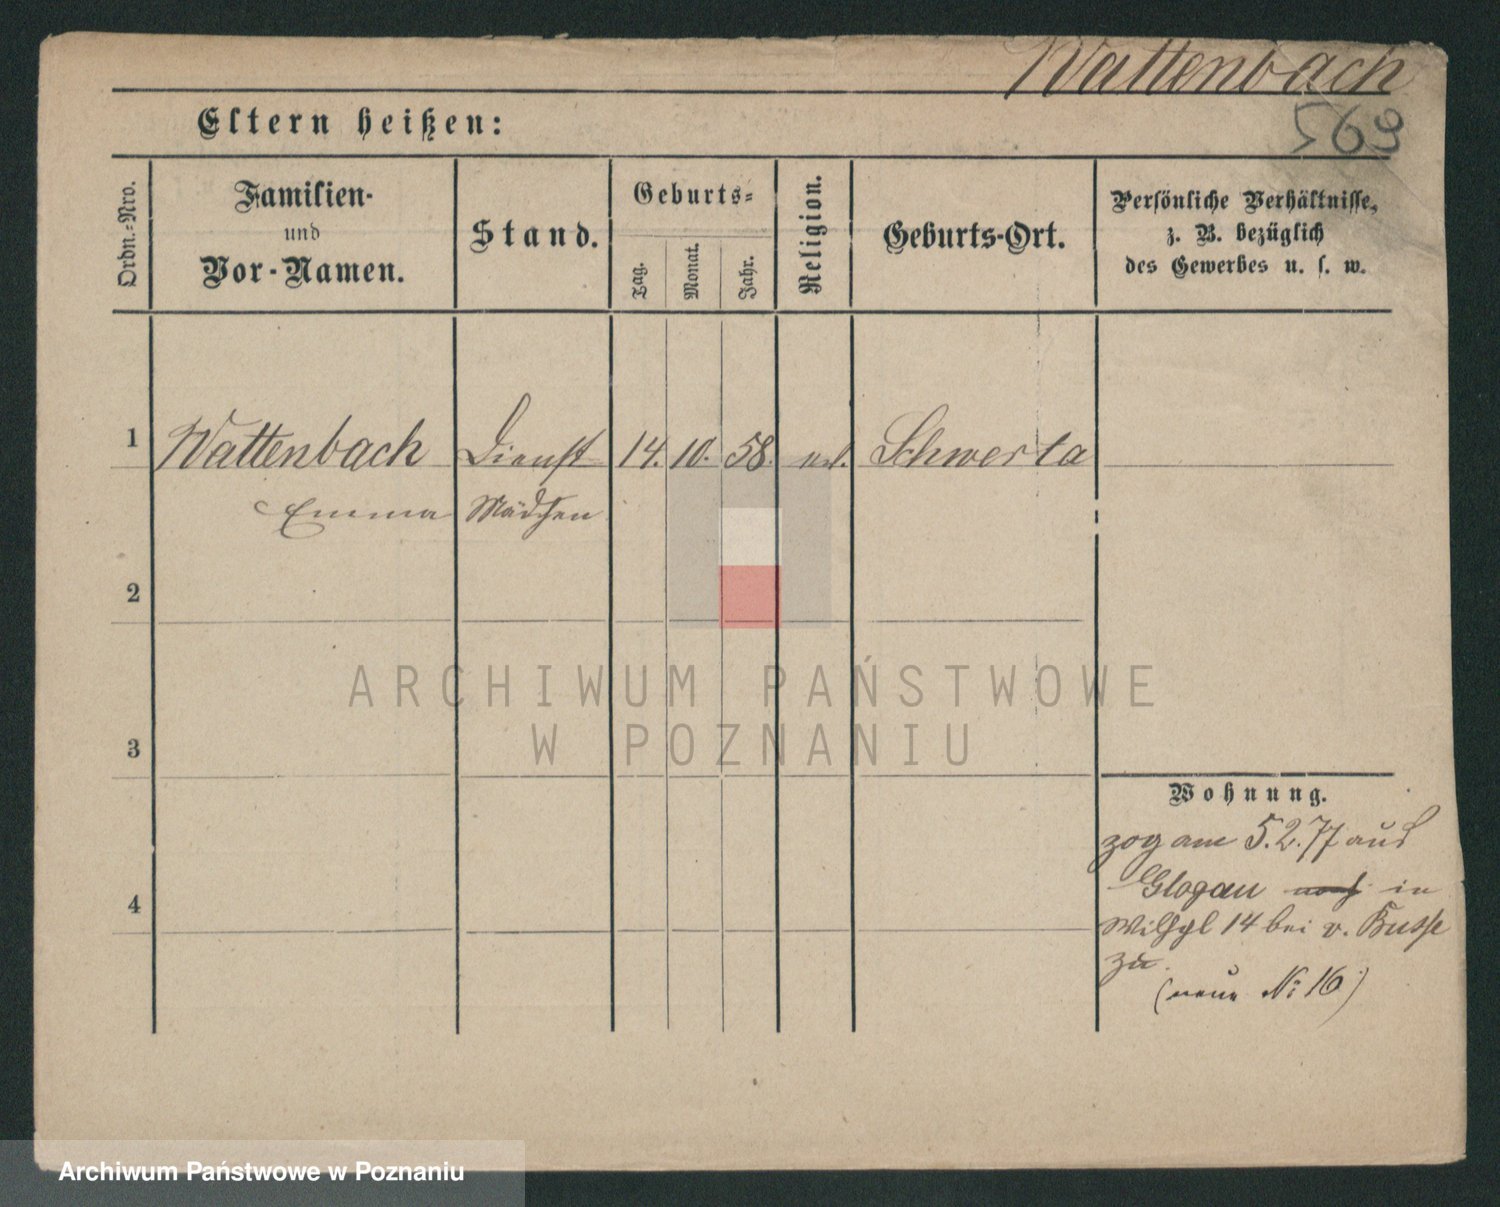 Wattenbach
569
Eltern heißen:
Ordn.-Nro.
Familien-
und
Vor-Namen.
Stand.
Geburts-
Tag.
Monat.
Jahr.
Religion.
Geburts-Ort.
Persönliche Verhältnisse,
z. B. bezüglich
des Gewerbes u. s. w.
1 Wattenbach Dienst 14. 10. 58. Schwerta
Emma Mädchen
2
3
4
Wohnung.
zog am 5.2.77 aus
Glogau nach in
14 bei v. Busse
zu.
(neue No 16)
ARCHIWUM PAŃSTWOWE
W POZNANIU
Archiwum Państwowe w Poznaniu